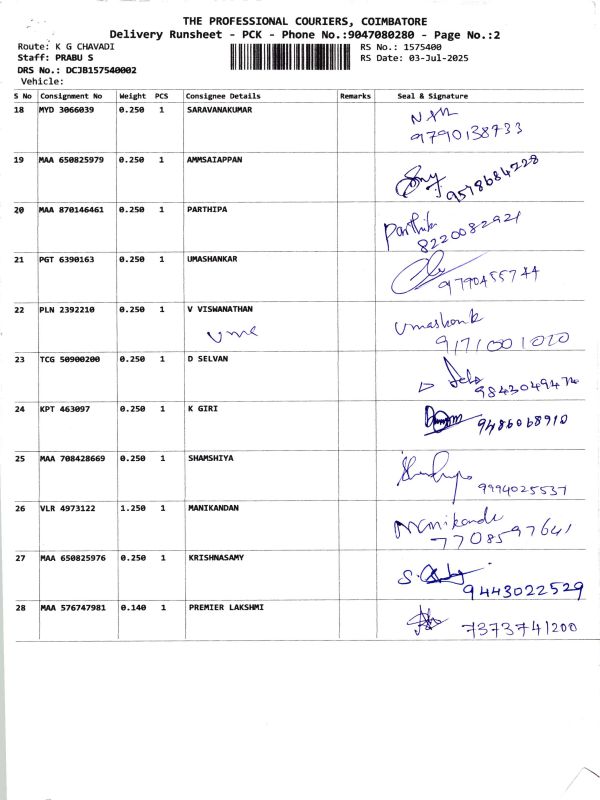 THE PROFESSIONAL COURIERS, COIMBATORE
Delivery Runsheet - PCK - Phone No.:9047080280 - Page No.:2
Route: K G CHAVADI
RS No.: 1575400
Staff: PRABU S
RS Date: 03-Jul-2025
DRS No.: DCJB157540002
Vehicle:
S No Consignment No Weight PCS Consignee Details Remarks Seal & Signature
18 MYD 3066039 0.250 1 SARAVANAKUMAR
9790138733
19 MAA 650825979 0.250 1 AMMSAIAPPAN
9578684228
20 MAA 870146461 0.250 1 PARTHIPA
Parthiba
8220082921
21 PGT 6390163 0.250 1 UMASHANKAR
9790455744
22 PLN 2392210 0.250 1 V VISWANATHAN
Uma Umashank
9171001020
23 TCG 50900200 0.250 1 D SELVAN
9843049474
24 KPT 463097 0.250 1 K GIRI
9486068910
25 MAA 708428669 0.250 1 SHAMSHIYA
9994025537
26 VLR 4973122 1.250 1 MANIKANDAN
7708597641
27 MAA 650825976 0.250 1 KRISHNASAMY
9443022529
28 MAA 576747981 0.140 1 PREMIER LAKSHMI
7373741200